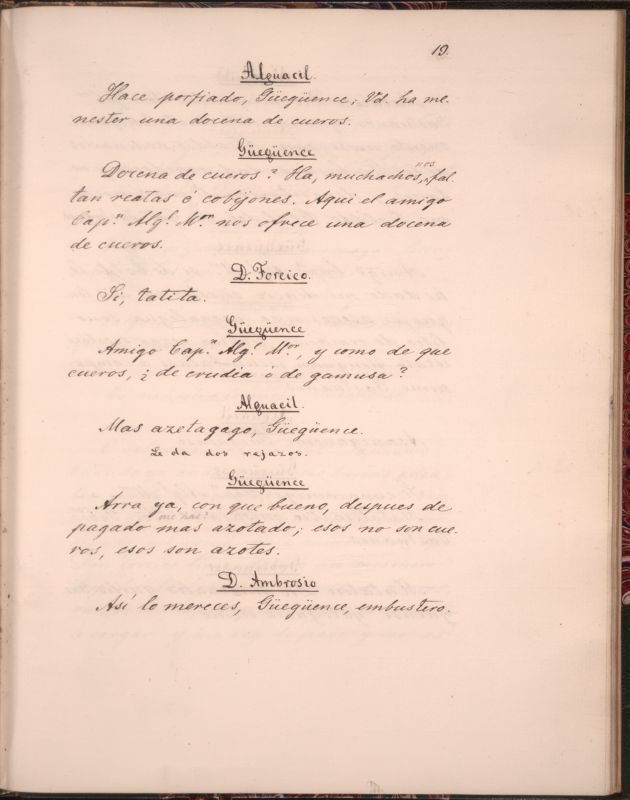 19.
Alguacil.
Hace porfiado, Güegüence; Vd. ha me-
nester una docena de cueros.
Güegüence
Docena de cueros? Ha, muchachos, nos fal-
tan reatas ó cobijones. Aqui el amigo
Cap.n Alg.l M.or nos ofrece una docena
de cueros.
D. Forcico.
Si, tatita.
Güegüence
Amigo Cap.n Alg.l M.or, y como de que
cueros, ¿ de crudia ó de gamusa?
Alguacil.
Mas azetagago, Güegüence.
Le da dos rejazos.
Güegüence
Arra ya, con que bueno, despues de
me has?
pagado mas azotado; esos no son cue-
ros, esos son azotes.
D. Ambrosio
Así lo mereces, Güegüence, embustero.